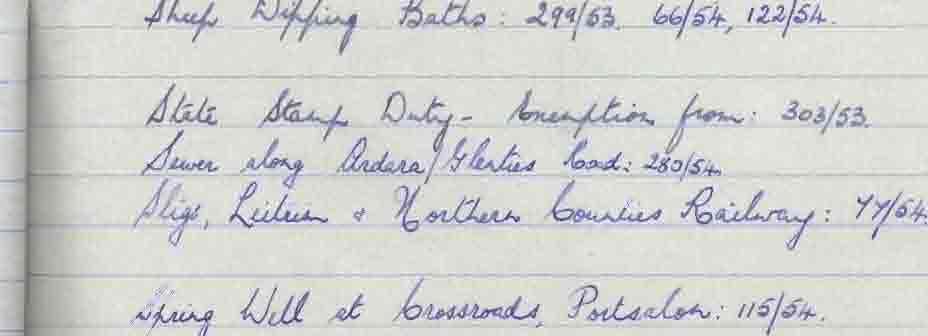 Sheep Dipping Baths: 299/53. 66/54, 122/54.
State Stamp Duty - Exemption from: 303/53.
Sewer along Ardara/Glenties Road: 280/54.
Sligo, Leitrim & Northern Counties Railway: 77/54.
Spring Well at Crossroads, Portsalon: 115/54.